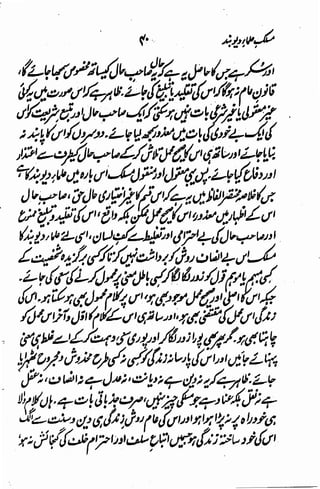 مسلک علماء دیوبند ۴۰
اور سُکر ہے جس کا حاصل یہ ہے کہ یہ صاحب حال کیساتھ مخصوص سمجھا جائے گا،
قانونِ عام نہ ہوگا کہ اس کی تقلید یا تبلیغ کی جائے۔ ظاہر ہے کہ اس صورت میں یہ کوئی
غیر معقول یا غیر شرعی بات نہیں ہوسکتی کہ ایک صاحب حال اور متبع شریعت کو اس
کی ایک بے خودی کی بات میں معذور سمجھ لیا جائے۔ دوسروں کو اس کا پابند نہ
بنایا جائے اور ساتھ ہی اس کا صحیح محمل تلاش کر کے صاحب حال کی طرف سے اعتذار
اور دفاع کیا جائے۔ پس یہی معقول اور منقول مسلک اس بارہ میں علماء دیوبند کا ہے
جس کا خلاصہ مختصر الفاظ میں یہ ہے کہ اس قسم کا غیر اختیاری حال حق، صاحب حال
اس کے اظہار میں معذور، اس کا صحیح محمل ممکن بلکہ واقع، اس کی تقلید و تبلیغ ممنوع
اور صاحب حال کی بے احترامی اور تغلیط سے کف لسان، اسی لئے علماء دیوبند کا
مسلک اس بے انصافی روش کو برداشت نہیں کرتا کہ کسی برگزیدہ شخصیت کے
کسی مبہم یا موہم قول کو زور لگا لگا کر کسی باطل معنی پر محمول کرنے کی سعی کی جائے۔
جبکہ اس کا اصلی اور صحیح محمل موجود بھی ہو، اس پر کلام محمول بھی ہو سکتا ہو۔ اس کی
زندگی اس محمل کی مقتضی بھی ہو، اور ساتھ ہی اس کے کلام کا اوّل و آخر اس محمل کو
چاہتا بھی ہو۔ مگر پھر بھی پورا زور لگا کر اور پوری سعی و ہمت کر کے اسے غلط ہی معنی
پہنائے جائیں اور اس کی پارسانہ زندگی کو کسی نہ کسی طرح مخدوش و مجروح ٹھہرایا
جائے۔ ظاہر ہے کہ یہ نہ دین ہے نہ دیانت، نہ عدل ہے نہ انصاف، نہ عقل
ہے نہ نقل بلکہ عناد ہے جو مسلکی چیز نہیں، صرف جذباتی بات ہے، ہاں کلام والا
ہی خود راہ پر نہ پڑا ہوا ہو اور اس کی عام روشِ زندگی ہی دین و سنت سے الگ
اس کی خود ساختہ زندگی ہو جسمیں اتباع سلف اور احترام خلف کی گنجائش نہ ہو